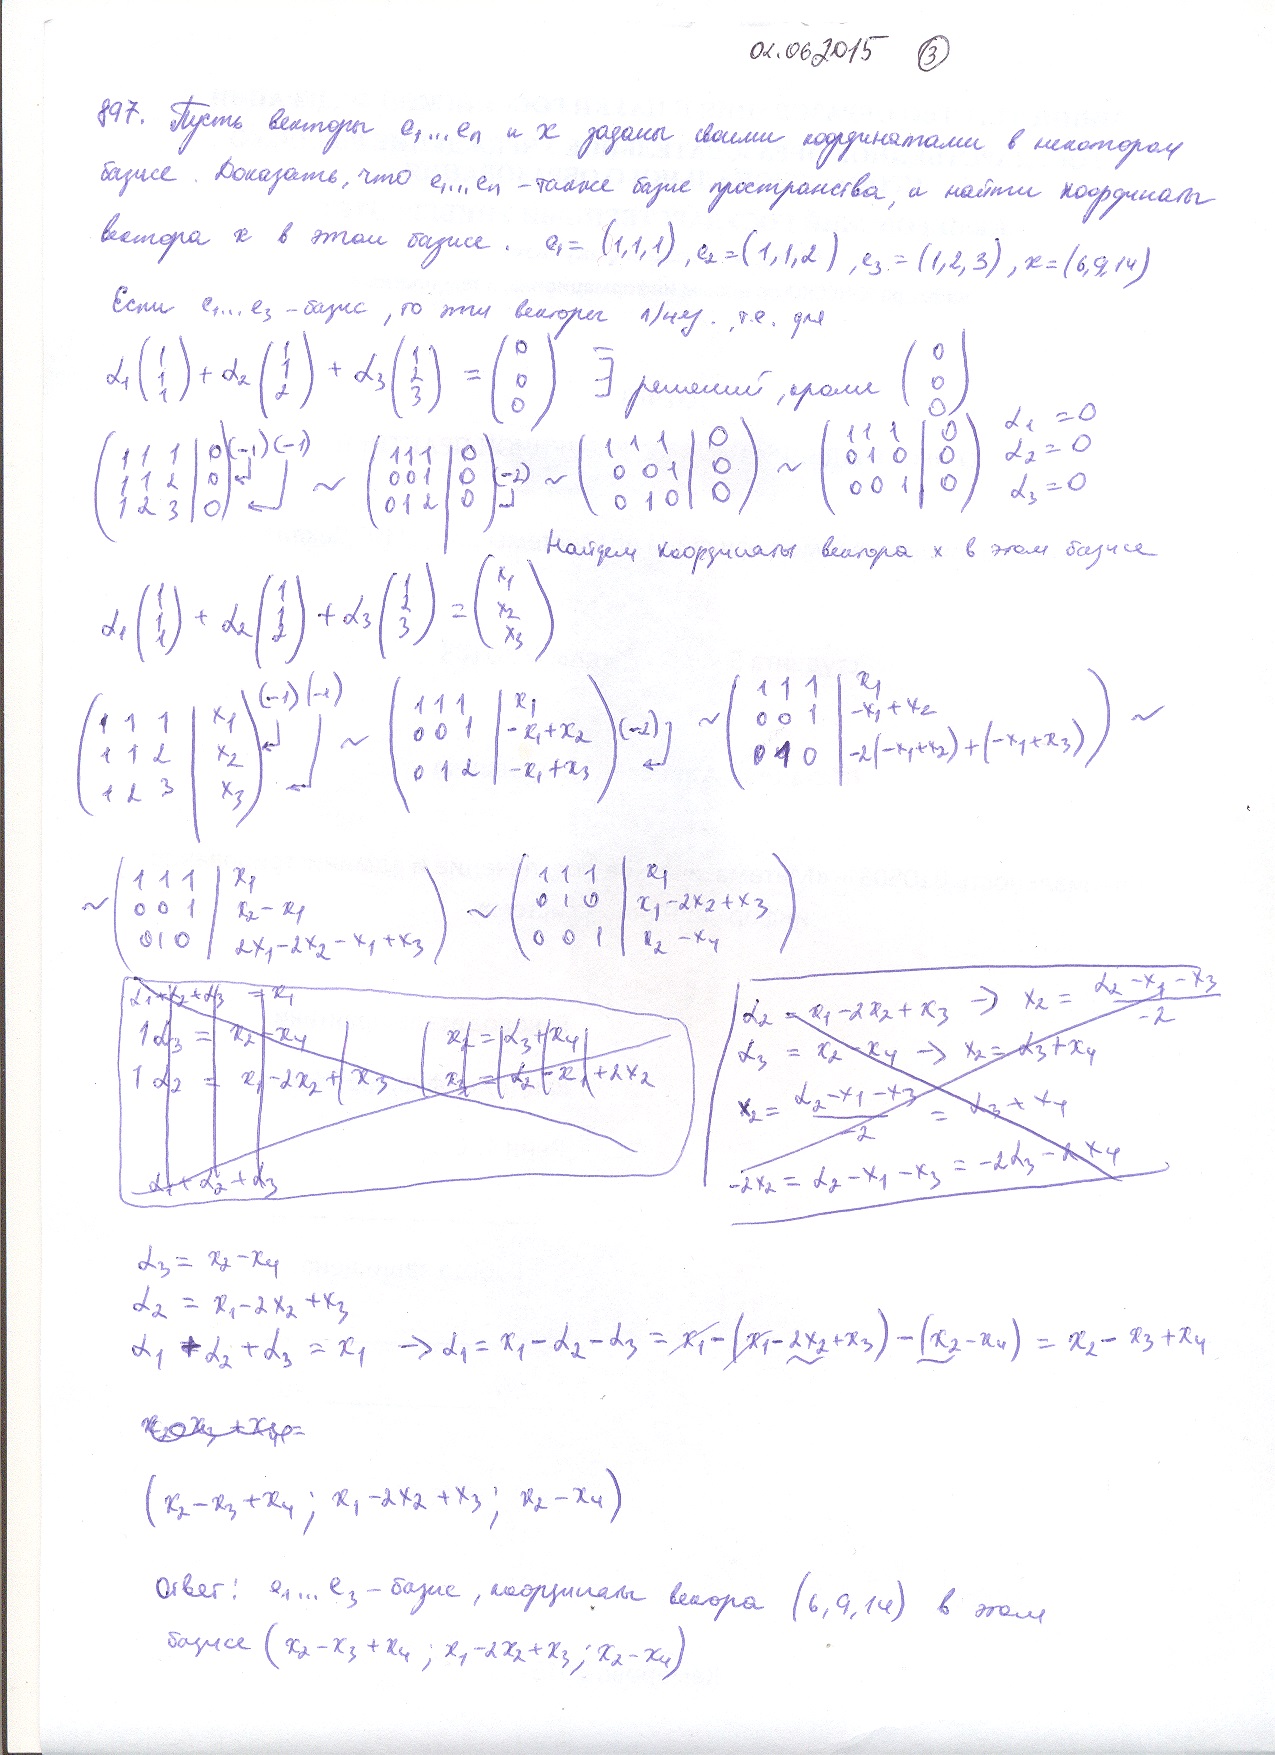 02.06.2015 ③
897. Пусть векторы e₁...eₙ и x заданы своими координатами в некотором
базисе. Доказать, что e₁...eₙ - также базис пространства, и найти координаты
вектора x в этом базисе. e₁ = (1,1,1), e₂ = (1,1,2), e₃ = (1,2,3), x = (6,9,14)
Если e₁...e₃ - базис, то эти векторы л/нез., т.е. для
α₁(1 1 1) + α₂(1 1 2) + α₃(1 2 3) = (0 0 0) ∄ решений, кроме (0 0 0)
(1 1 1 | 0 (-1) (-1) ~ (1 1 1 | 0 ~ (1 1 1 | 0 ~ (1 1 1 | 0 α₁ = 0
1 1 2 | 0 0 0 1 | 0 (-2) 0 0 1 | 0 0 1 0 | 0 α₂ = 0
1 2 3 | 0) 0 1 2 | 0) 0 1 0 | 0) 0 0 1 | 0) α₃ = 0
Найдем координаты вектора x в этом базисе
α₁(1 1 1) + α₂(1 1 2) + α₃(1 2 3) = (x₁ x₂ x₃)
(1 1 1 | x₁ (-1) (-1) ~ (1 1 1 | x₁ ~ (1 1 1 | x₁
1 1 2 | x₂ 0 0 1 | -x₁+x₂ (-2) 0 0 1 | -x₁+x₂
1 2 3 | x₃) 0 1 2 | -x₁+x₃) 0 1 0 | -2(-x₁+x₂)+(-x₁+x₃)) ~
~ (1 1 1 | x₁ ~ (1 1 1 | x₁
0 0 1 | x₂-x₁ 0 1 0 | x₁-2x₂+x₃
0 1 0 | 2x₁-2x₂-x₁+x₃) 0 0 1 | x₂-x₄)
α₁+α₂+α₃ = x₁
1α₃ = x₂-x₄ x₂ = α₃+x₄
1α₂ = x₁-2x₂+x₃ = α₂-x₁+2x₂
α₁+α₂+α₃
α₂ = x₁-2x₂+x₃ → x₂ = (α₂-x₁-x₃)/-2
α₃ = x₂-x₄ → x₂ = α₃+x₄
x₂ = (α₂-x₁-x₃)/-2 = α₃+x₄
-2x₂ = α₂-x₁-x₃ = -2α₃-2x₄
α₃ = x₂-x₄
α₂ = x₁-2x₂+x₃
α₁+α₂+α₃ = x₁ → α₁ = x₁-α₂-α₃ = x₁-(x₁-2x₂+x₃)-(x₂-x₄) = x₂-x₃+x₄
(x₂-x₃+x₄; x₁-2x₂+x₃; x₂-x₄)
Ответ: e₁...e₃ - базис, координаты вектора (6,9,14) в этом
базисе (x₂-x₃+x₄; x₁-2x₂+x₃; x₂-x₄)